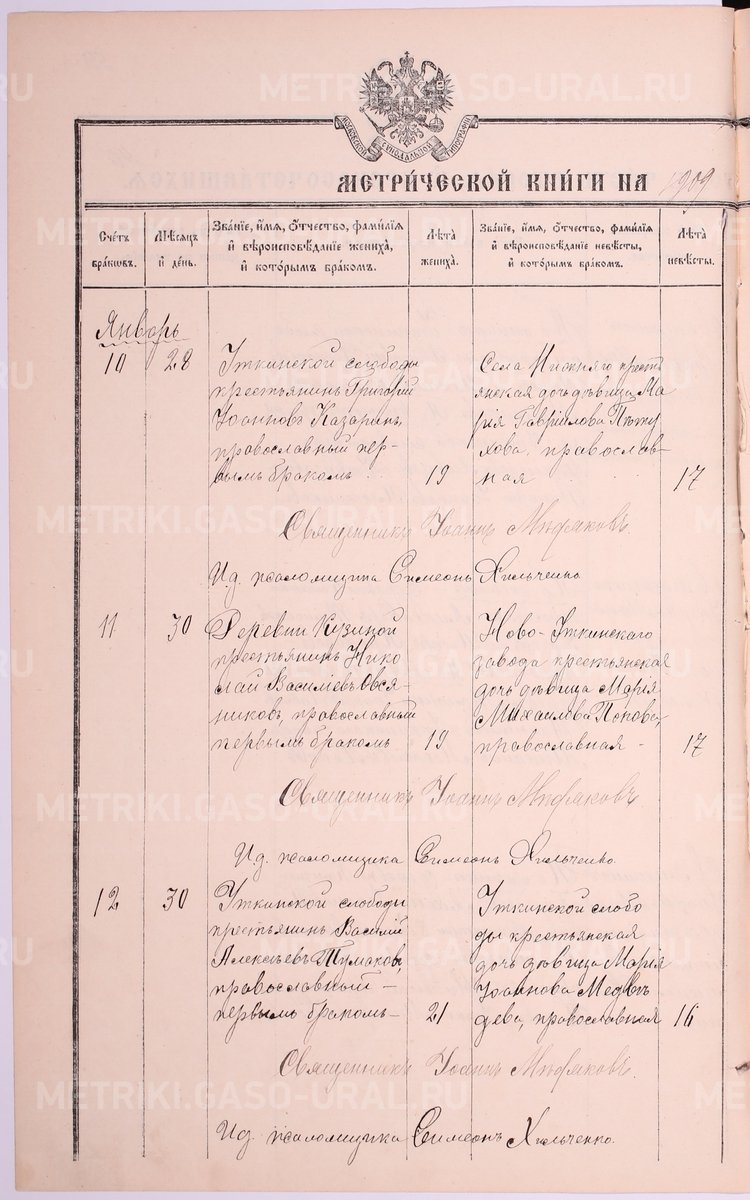 МОСКОВСКОЙ СѴНОДАЛЬНОЙ ТИПОГРАФІИ
МЕТРИЧЕСКОЙ КНИГИ НА 1909
Счетъ браковъ.
Мѣсяцъ и день.
Званіе, имя, отчество, фамилія и вѣроисповѣданіе жениха, и которымъ бракомъ.
Лѣта жениха.
Званіе, имя, отчество, фамилія и вѣроисповѣданіе невѣсты, и которымъ бракомъ.
Лѣта невѣсты.
Январь
10 28
Уткинской слободы
крестьянинъ Григорій
Іоанновъ Казаринъ,
православный пер-
вымъ бракомъ
19
Села Нижняго кресть
янская дочь дѣвица Ма
рія Гавріилова Пѣту
хова, православ-
ная
17
Священникъ Іоаннъ
И.д. псаломщика Симеонъ Хильченко
11 30
Деревни Кузиной
крестьянинъ Нико
лай Василіевъ Овся-
никовъ, православный
первымъ бракомъ
19
Ново-Уткинскаго
завода крестьянская
дочь дѣвица Марія
Михаилова Попова,
православная -
17
Священникъ Іоаннъ
И.д. псаломщика Симеонъ Хильченко
12 30
Уткинской слободы
крестьянинъ Василій
Алексѣевъ Тумаковъ,
православный -
первымъ бракомъ -
21
Уткинской слобо
ды крестьянская
дочь дѣвица Марія
Іоаннова Медвѣ
дева, православная
16
Священникъ Іоаннъ
И.д. псаломщика Симеонъ Хильченко
METRIKI.GASO-URAL.RU